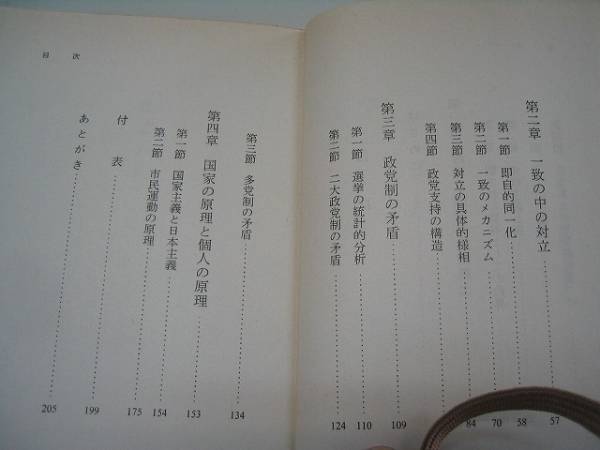 第二章　一致の中の対立……57
第一節　即自的同一化……58
第二節　一致のメカニズム……70
第三節　対立の具体的様相……84
第四節　政党支持の構造……
第三章　政党制の矛盾……109
第一節　選挙の統計的分析……110
第二節　二大政党制の矛盾……124
目　次
第三節　多党制の矛盾……134
第四章　国家の原理と個人の原理……153
第一節　国家主義と日本主義……154
第二節　市民運動の原理……175
付　表……199
あとがき……205